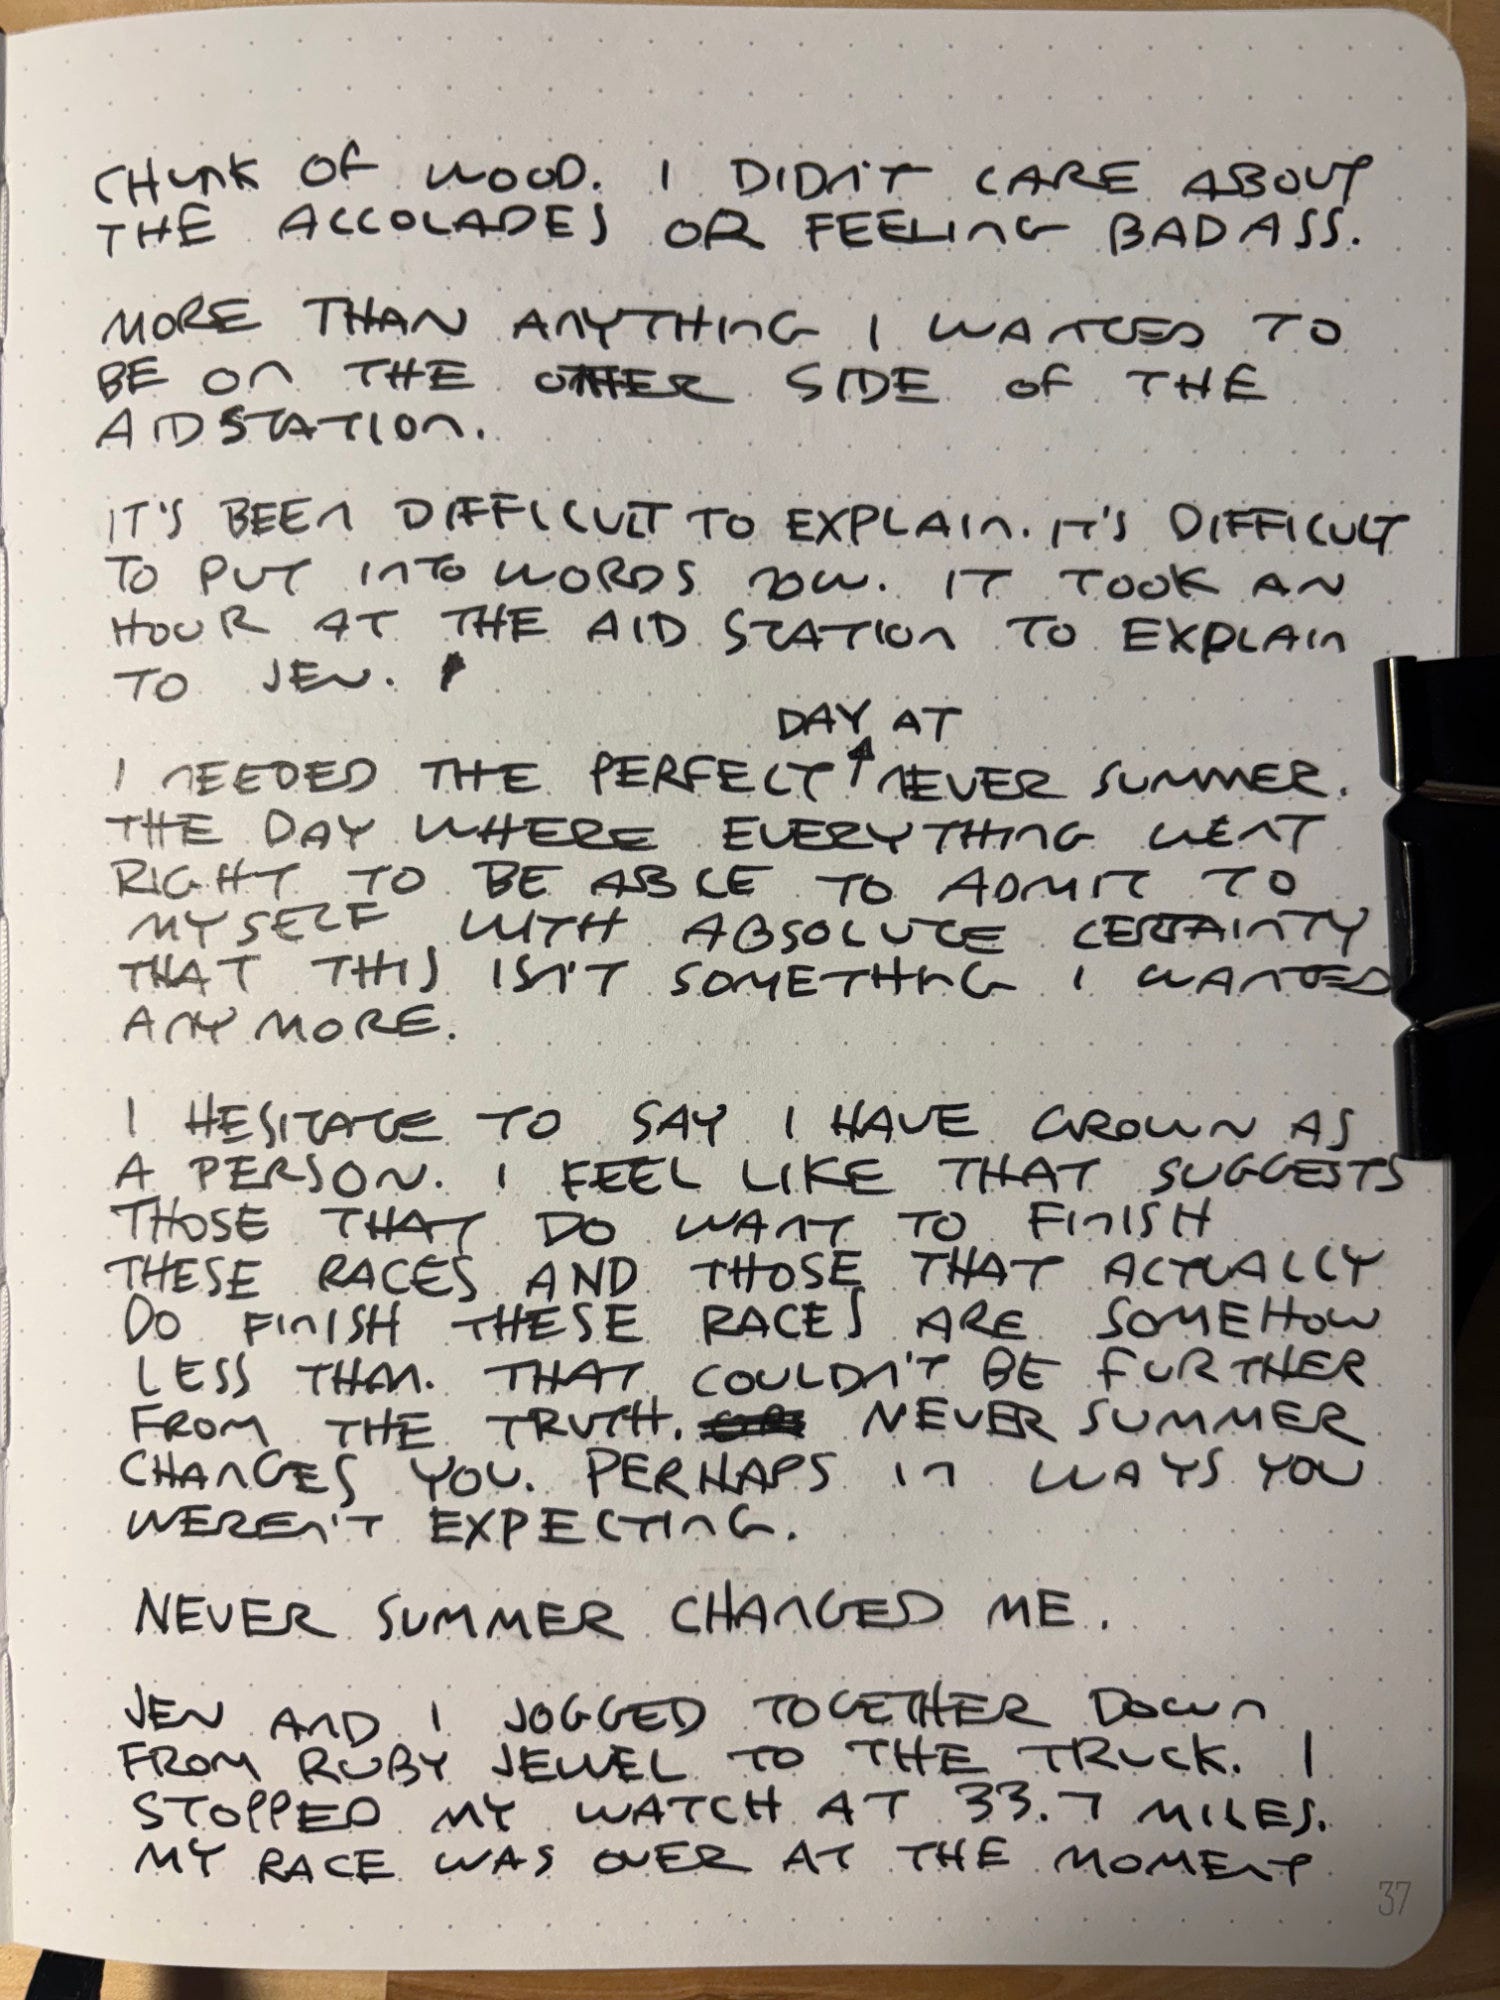 CHUNK OF WOOD. I DIDN'T CARE ABOUT
THE ACCOLADES OR FEELING BADASS.
MORE THAN ANYTHING I WANTED TO
BE ON THE OTHER SIDE OF THE
AIDSTATION.
IT'S BEEN DIFFICULT TO EXPLAIN. IT'S DIFFICULT
TO PUT INTO WORDS NOW. IT TOOK AN
HOUR AT THE AID STATION TO EXPLAIN
TO JEN.
DAY AT
I NEEDED THE PERFECT NEVER SUMMER.
THE DAY WHERE EVERYTHING WENT
RIGHT TO BE ABLE TO ADMIT TO
MYSELF WITH ABSOLUTE CERTAINTY
THAT THIS ISN'T SOMETHING I WANTED
ANYMORE.
I HESITATE TO SAY I HAVE GROWN AS
A PERSON. I FEEL LIKE THAT SUGGESTS
THOSE THAT DO WANT TO FINISH
THESE RACES AND THOSE THAT ACTUALLY
DO FINISH THESE RACES ARE SOMEHOW
LESS THAN. THAT COULDN'T BE FURTHER
FROM THE TRUTH. NEVER SUMMER
CHANGES YOU. PERHAPS IN WAYS YOU
WEREN'T EXPECTING.
NEVER SUMMER CHANGED ME.
JEN AND I JOGGED TOGETHER DOWN
FROM RUBY JEWEL TO THE TRUCK. I
STOPPED MY WATCH AT 33.7 MILES.
MY RACE WAS OVER AT THE MOMENT
37